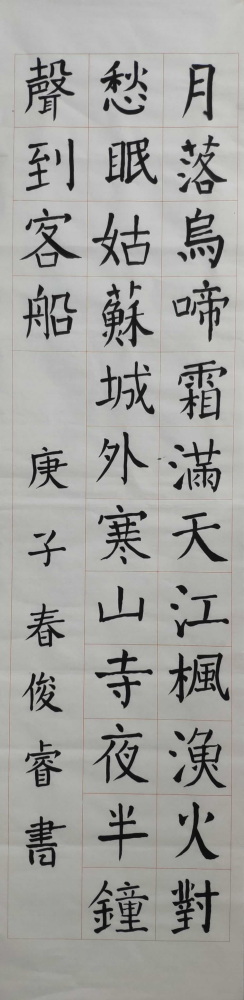 月落烏啼霜滿天江楓漁火對
愁眠姑蘇城外寒山寺夜半鐘
聲到客船
庚子春俊睿書